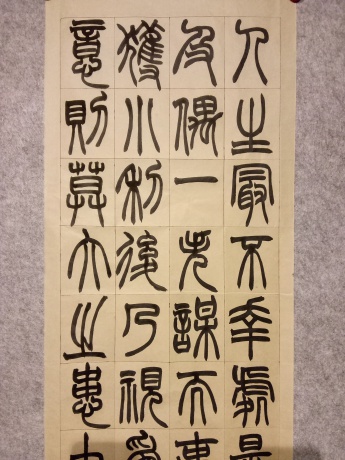 人生最不幸處是
及偶一失謀而事
獲小利後乃視為
意則莫大之患由